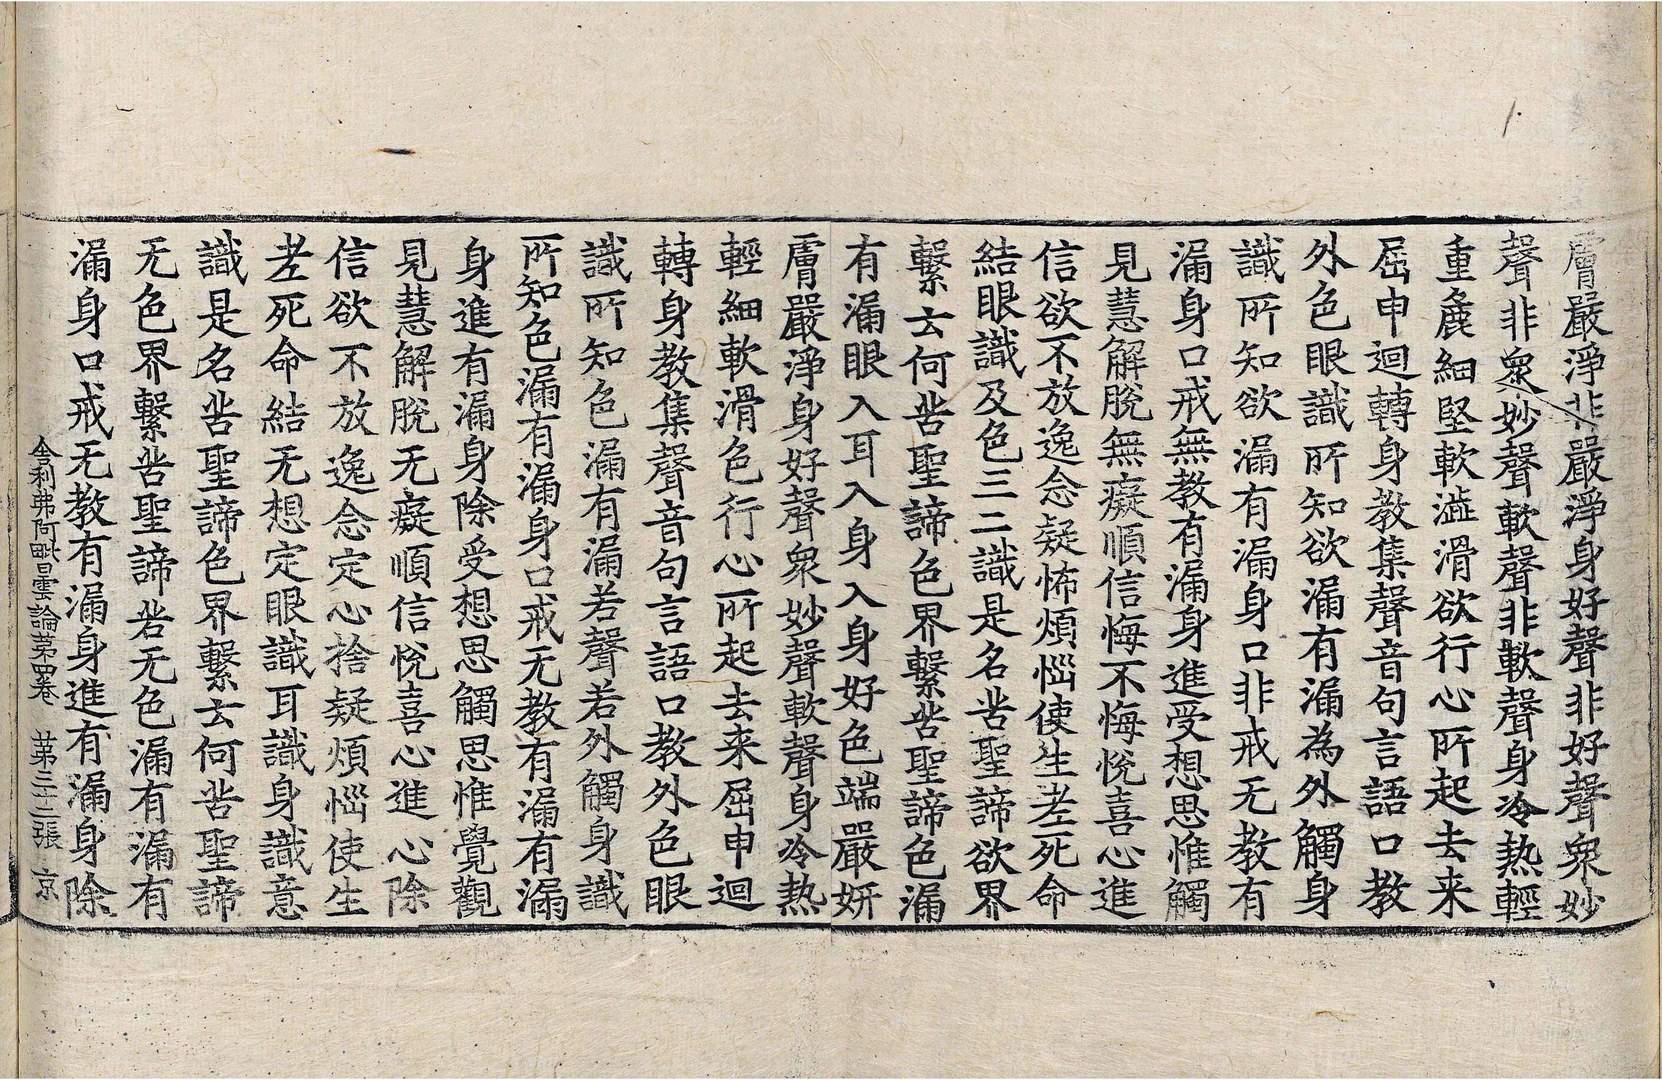 膚嚴淨非嚴淨身好聲非好聲衆妙
聲非衆妙聲軟聲非軟聲身冷热輕
重麁細堅軟澁滑欲行心所起去来
屈申迴轉身教集聲音句言語口教
外色眼識所知欲漏有漏為外觸身
識所知欲漏有漏身口非戒无教有
漏身口戒無教有漏身進受想思惟觸
見慧解脫無癡順信悔不悔悅喜心進
信欲不放逸念疑怖煩惱使生老死命
結眼識及色三二識是名苦聖諦欲界
繫云何苦聖諦色界繫苦聖諦色漏
有漏眼入耳入身入身好色端嚴妍
膚嚴淨身好聲衆妙聲軟聲身冷热
輕細軟滑色行心所起去来屈申迴
轉身教集聲音句言語口教外色眼
識所知色漏有漏若聲若外觸身識
所知色漏有漏身口戒无教有漏有漏
身進有漏身除受想思觸思惟覺觀
見慧解脫无癡順信悅喜心進心除
信欲不放逸念定心捨疑煩惱使生
老死命結无想定眼識耳識身識意
識是名苦聖諦色界繫云何苦聖諦
无色界繫苦聖諦若无色漏有漏有
漏身口戒无教有漏身進有漏身除
舍利弗阿毗曇論苐四卷 苐三十二張 京